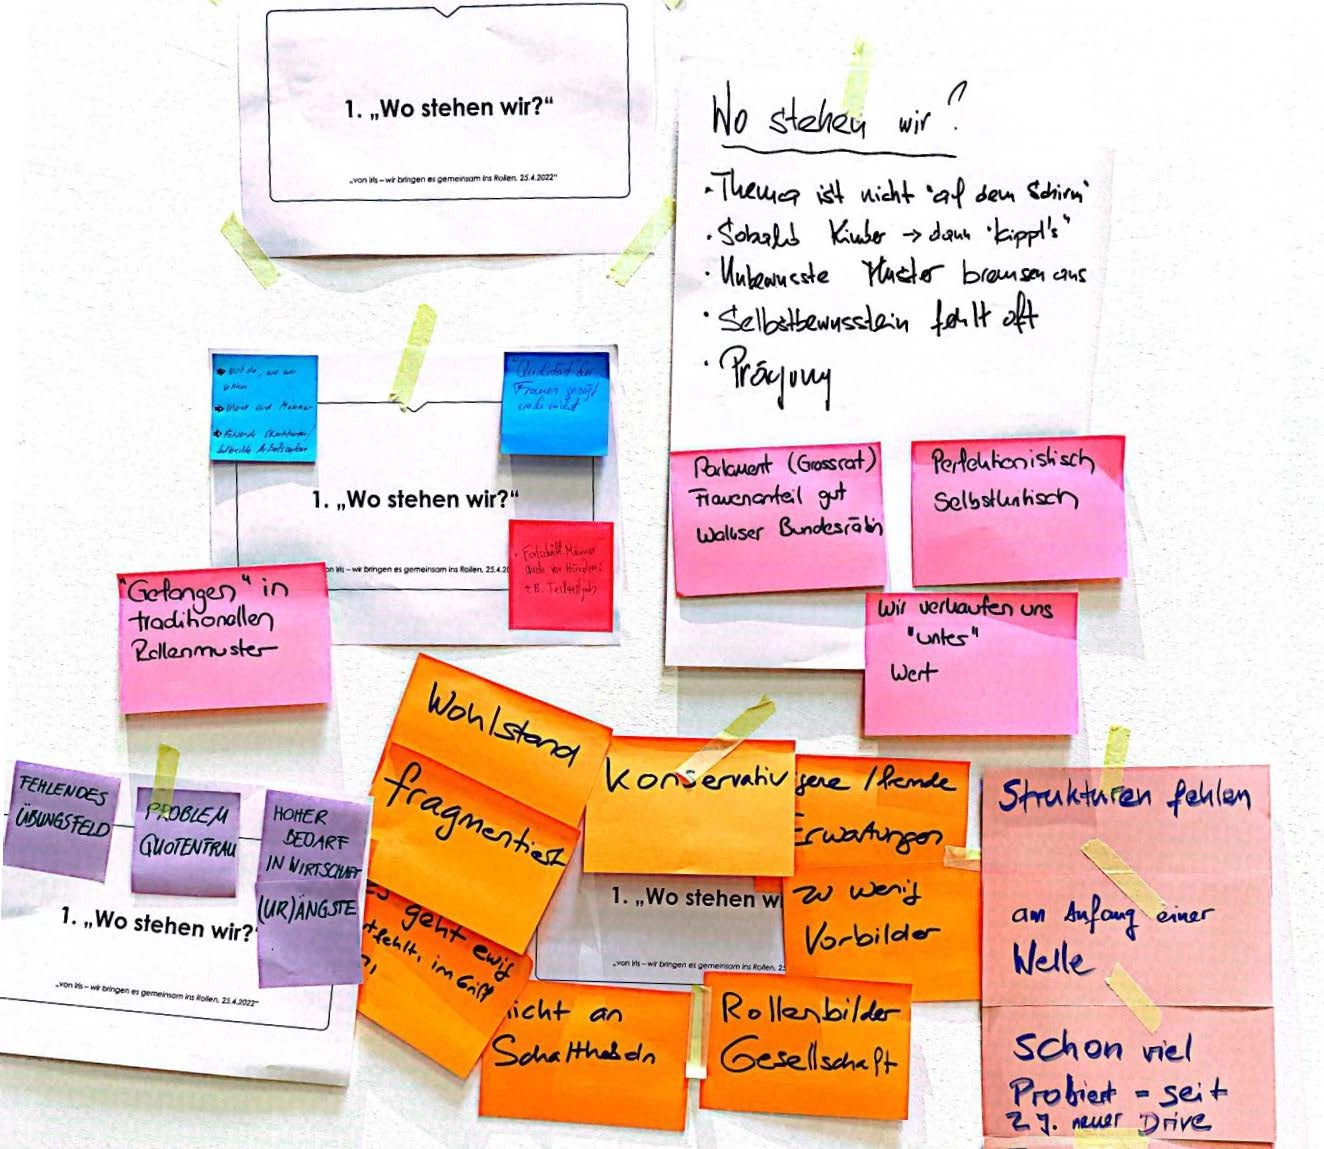 1. „Wo stehen wir?“
„von Iris – wir bringen es gemeinsam ins Rollen, 25.4.2022“
Wo stehen wir?
· Thema ist nicht "auf dem Schirm"
· Sobald Kinder → dann "kippt's"
· Unbewusste Muster bremsen aus
· Selbstbewusstsein fehlt oft
· Prägung
Parlament (Grossrat)
Frauenanteil gut
Walliser Bundesrätin
Perfektionistisch
Selbstkritisch
Wir verkaufen uns
"unter"
Wert
Frauen
1. „Wo stehen wir?“
wir bringen es gemeinsam ins Rollen, 25.4.20
z.B.
"Gefangen" in
traditionellen
Rollenmuster
FEHLENDES
ÜBUNGSFELD
PROBLEM
QUOTENFRAU
HOHER
BEDARF
IN WIRTSCHAFT
(UR)ÄNGSTE
1. „Wo stehen wir?“
„von Iris – wir bringen es gemeinsam ins Rollen, 25.4.2022“
Wohlstand
fragmentiert
geht ewig
fehlt, im Griff
Konservativ
/ fremde
Erwartungen
zu wenig
Vorbilder
1. „Wo stehen w
„von Iris – wir bringen es gemeinsam ins Rollen, 25
nicht an
Schalthebeln
Rollenbilder
Gesellschaft
Strukturen fehlen
am Anfang einer
Welle
schon viel
Probiert - seit
2 J. neuer Drive